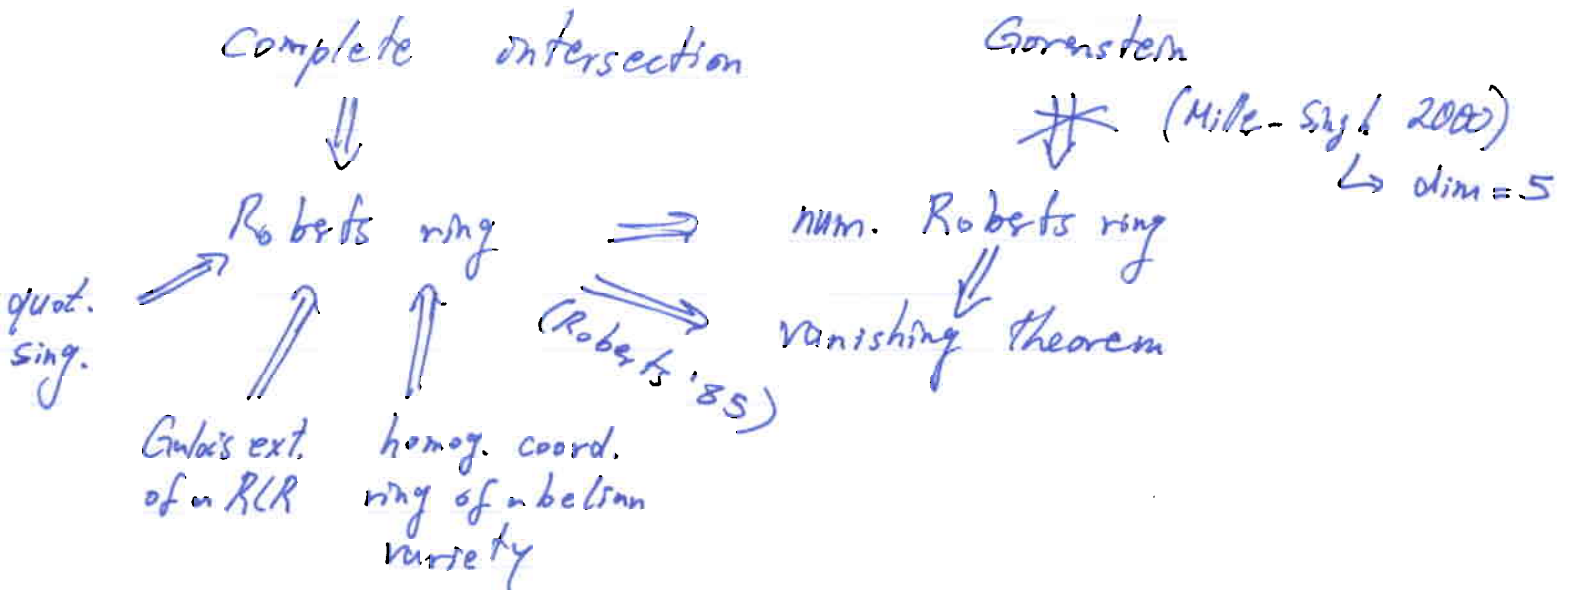 Complete intersection
Gorenstein
(Mille-Singh 2000)
↳ dim = 5
Roberts ring ⇒ num. Roberts ring
quot.
sing.
(Roberts '85)
vanishing theorem
Galois ext.
of a RLR
homog. coord.
ring of abelian
variety